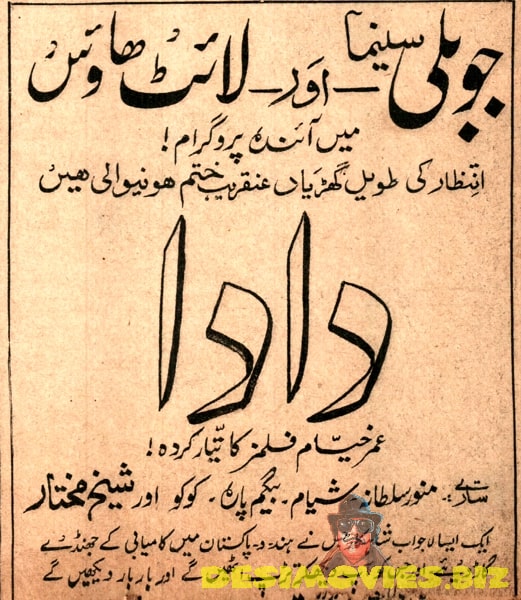 جوبلی سینما — اور — لائٹ ھاؤس
میں آئندہ پروگرام!
انتظار کی طویل گھڑیاں عنقریب ختم ھونیوالی ھیں
دادا
عمر خیّام فلمز کا تیّار کردہ!
ستارے:۔ منور سلطانہ۔ شیام۔ بیگم پارہ۔ کوکو اور شیخ مختار
ایک ایسا لاجواب نے ہند و پاکستان میں کامیابی کے جھنڈے
گے اور بار بار دیکھیں گے
DESIMOVIES.BIZ